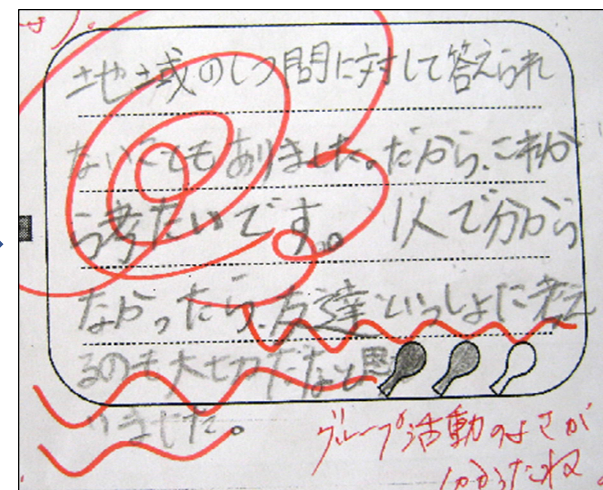 す。
地域のしつ問に対して答えられ
ないこともありました。だから、これか
ら考たいです。1人で分から
なかったら、友達といっしょに考え
るのも大切だなと思
いました。
グループ活動のよさが
わかったね